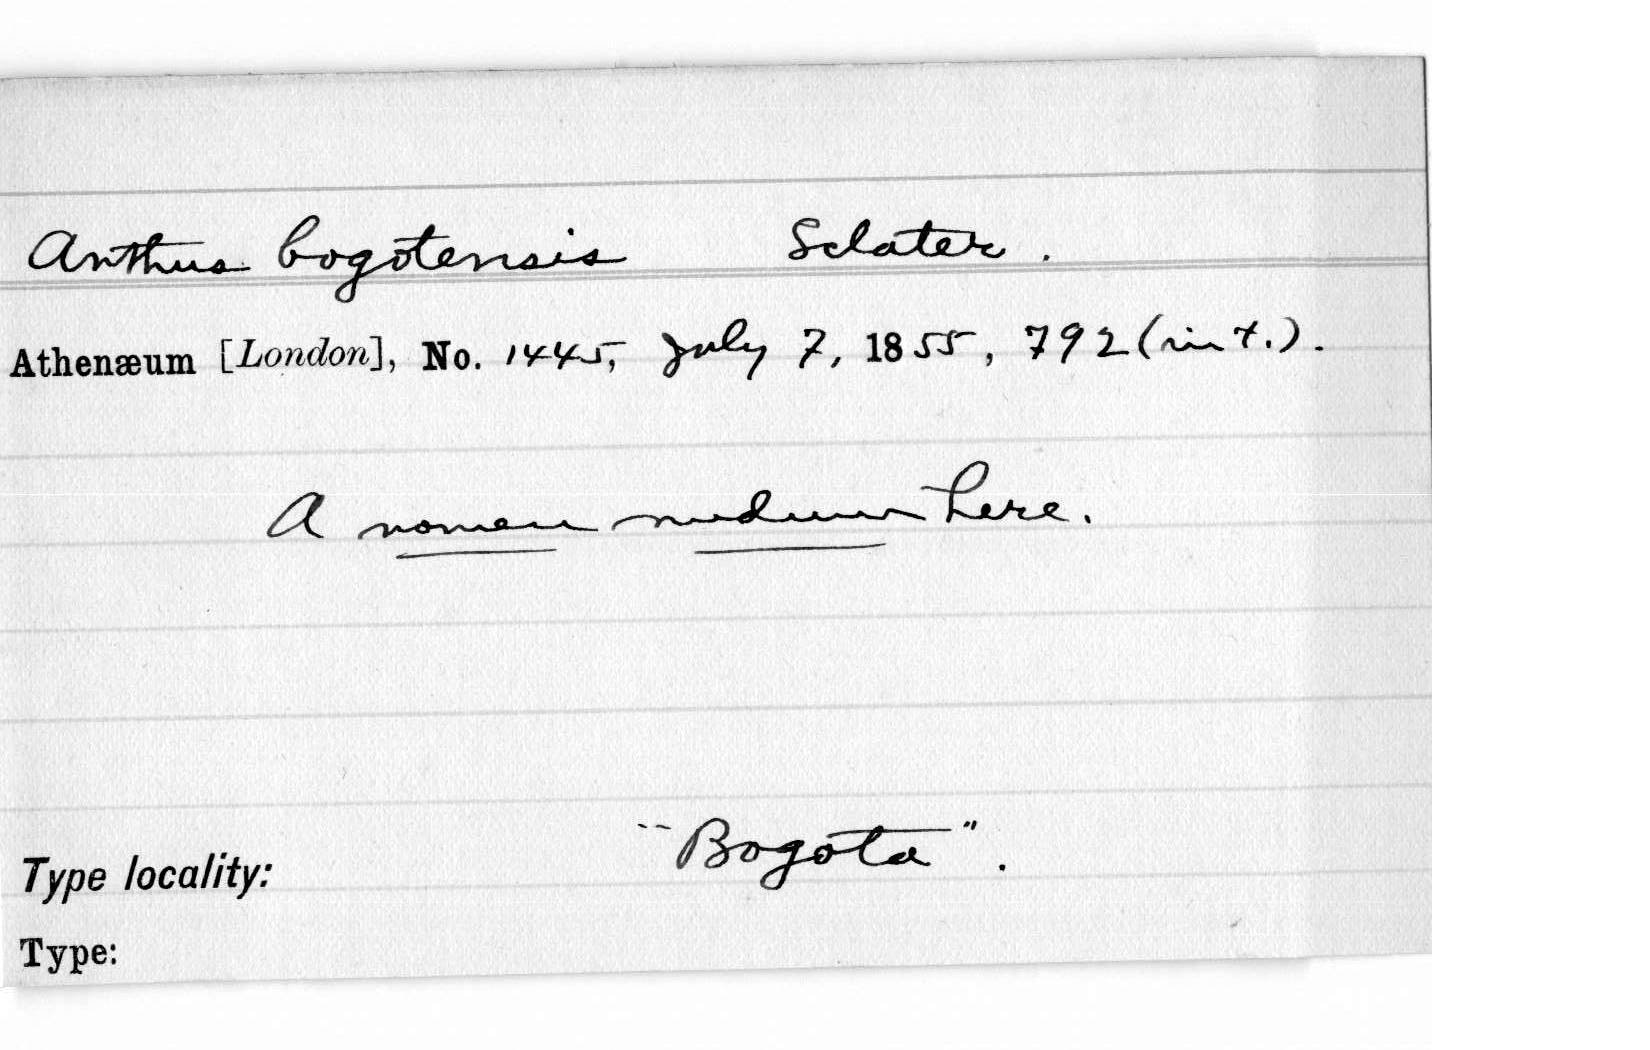 Anthus bogotensis Sclater.
Athenæum [London], No. 1445, July 7, 1855, 792 (in t.).
A nomen nudum here.
Type locality: "Bogota".
Type: